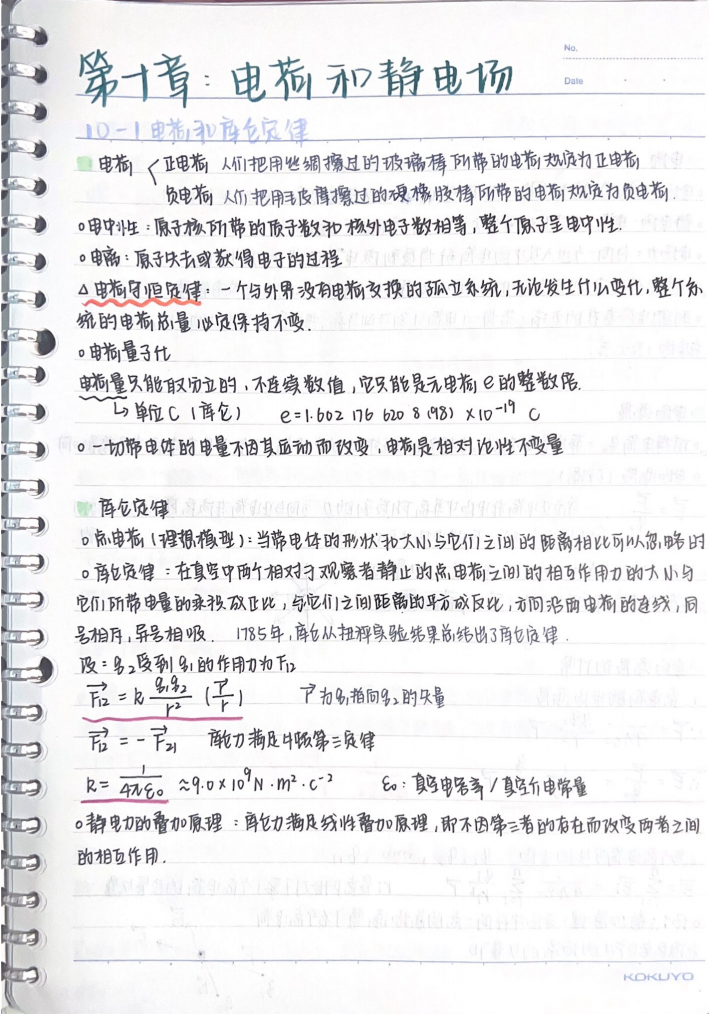 No.
Date
第十章：电荷和静电场
10-1电荷和库仑定律
电荷 正电荷 人们把用丝绸擦过的玻璃棒所带的电荷规定为正电荷
负电荷 人们把用毛皮摩擦过的硬橡胶棒所带的电荷规定为负电荷.
o电中性：原子核所带的质子数和核外电子数相等，整个原子呈电中性.
o电离：原子失去或获得电子的过程
△电荷守恒定律：一个与外界没有电荷交换的孤立系统，无论发生什么变化，整个系
统的电荷总量必定保持不变.
o电荷量子化
电荷量只能取分立的、不连续数值，它只能是元电荷e的整数倍.
↳单位C（库仑） e=1.602 176 620 8 (98) ×10⁻¹⁹ C
o一切带电体的电量不因其运动而改变，电荷是相对论性不变量
库仑定律
o点电荷（理想模型）：当带电体的形状和大小与它们之间的距离相比可以忽略时
o库仑定律：在真空中两个相对于观察者静止的点电荷之间的相互作用力的大小与
它们所带电量的乘积成正比，与它们之间距离的平方成反比，方向沿两电荷的连线，同
号相斥，异号相吸. 1785年，库仑从扭秤实验结果总结出了库仑定律.
设：q₂受到q₁的作用力为F₁₂
F₁₂⃗ = k q₁q₂/r² (r⃗/r) r⃗为q₁指向q₂的矢量
F₁₂⃗ = -F₂₁⃗ 库仑力满足牛顿第三定律
k = 1/4πε₀ ≈9.0×10⁹N·m²·c⁻² ε₀：真空电容率/真空介电常量
o静电力的叠加原理：库仑力满足线性叠加原理，即不因第三者的存在而改变两者之间
的相互作用.
KOKUYO